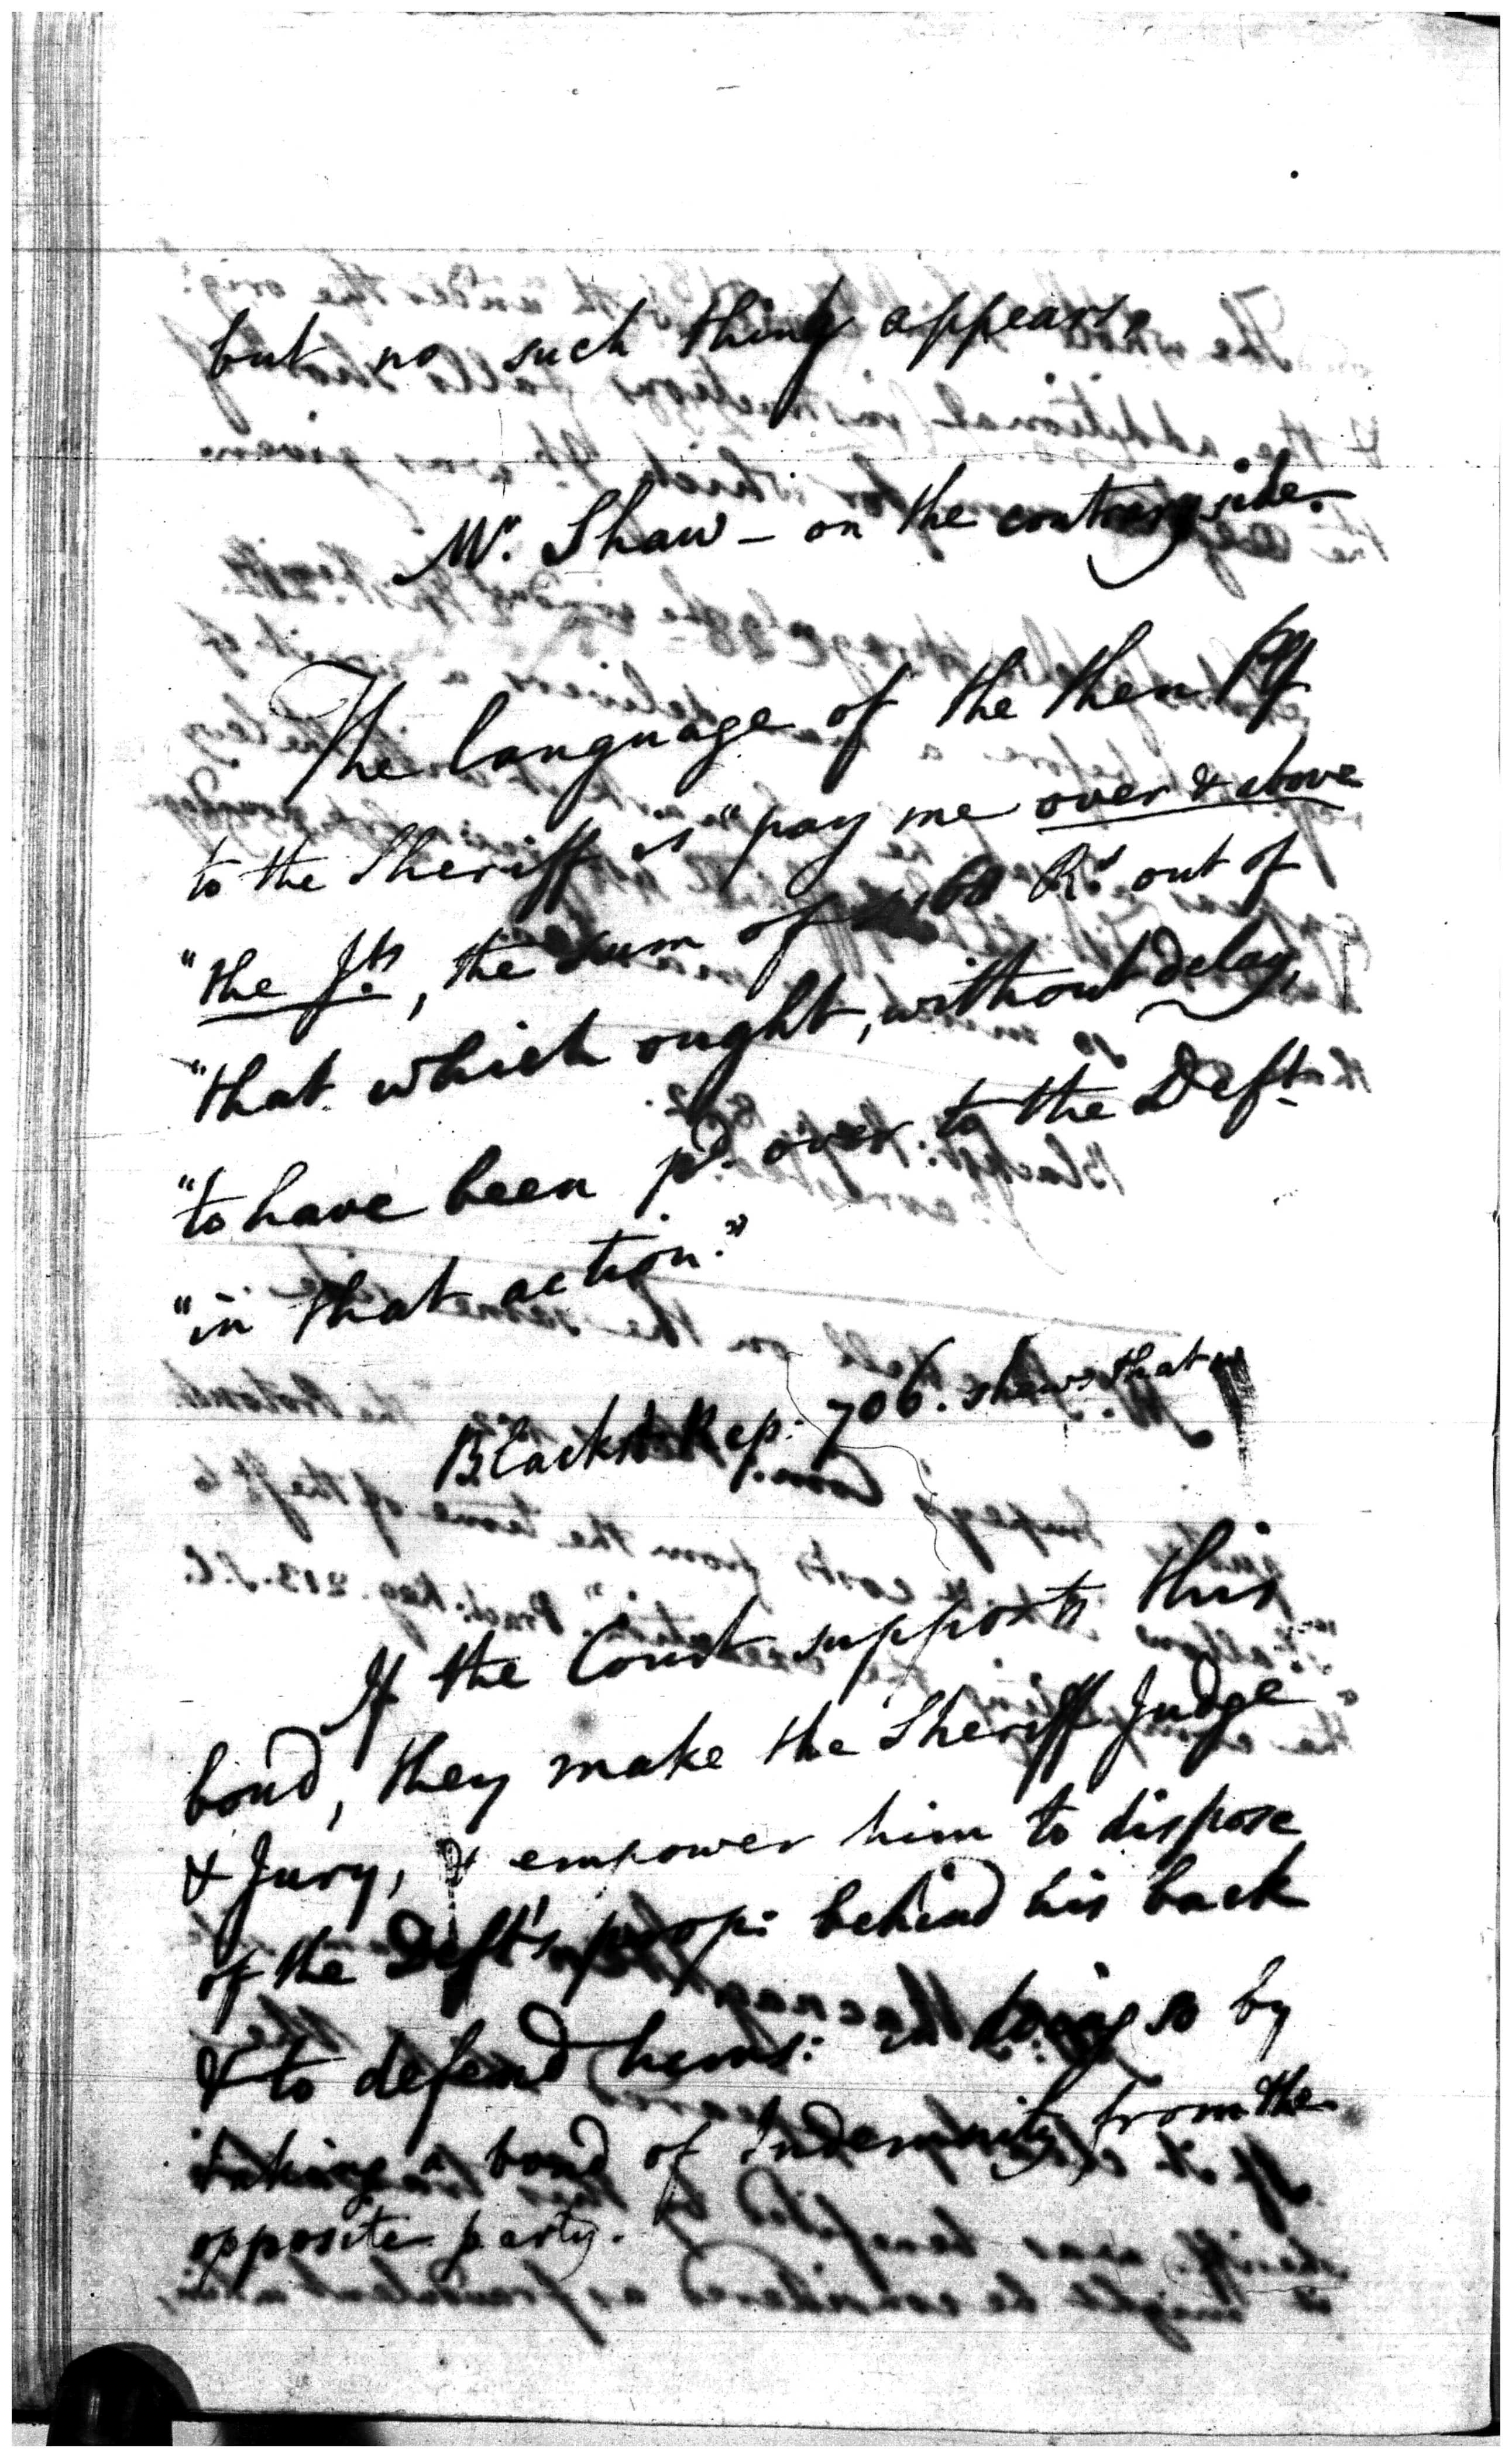 but no such thing appears.
Mr. Shaw – on the contrary side.
The language of the then Plf
to the Sheriff is "pay me over & above
"the Jt., the sum of Rs out of
"that which ought, without delay,
"to have been pd. over to the Deft
"in that action."
Blackst. Rep: 706. shews that
If the Court supports this
bond, they make the Sheriff Judge
& Jury, & empower him to dispose
of the Deft's prop: behind his back
& to defend hims: in doing so by
taking a bond of Indemnity from the
opposite party.